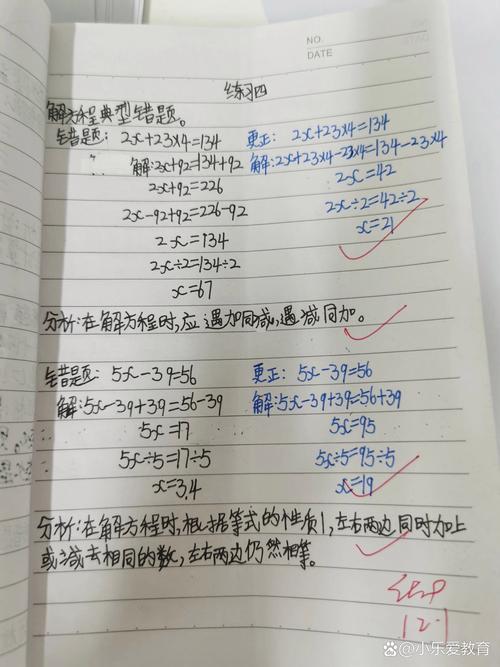 NO.
DATE
练习四
解方程典型错题。
错题: 2x+23×4=134 更正: 2x+23×4=134
解:2x+92=134+92 解:2x+23×4-23×4=134-23×4
2x+92=226 2x=42
2x-92+92=226-92 2x÷2=42÷2
2x=134 x=21
2x÷2=134÷2
x=67
分析:在解方程时,应遇加同减,遇减同加。
错题: 5x-39=56 更正: 5x-39=56
解:5x-39+39=56-39 解:5x-39+39=56+39
5x=17 5x=95
5x÷5=17÷5 5x÷5=95÷5
x=3.4 x=19
分析:在解方程时,根据等式的性质1,左右两边同时加上
或减去相同的数,左右两边仍然相等。
12.1
@小乐爱教育